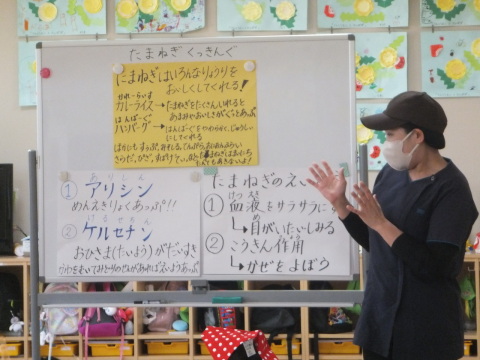 たまねぎ くっきんぐ
たまねぎはいろんなりょうりを
おいしくしてくれる!
かれーらいす
カレーライス→たまねぎをたくさんいれると
あまみやおいしさがぐっとあっぷ
はんばーぐ
ハンバーグ→はんばーぐをやわらかく、じゅーしぃ
にしてくれる
ありしん
① アリシン
めんえきりょくあっぷ!!
けるせちん
② ケルセチン
おひさま(たいよう)がだいすき
たまねぎのえい
けつえき
① 血液をサラサラにす
め
↳目がいたい、しみる
② こうきん作用
↳かぜをよぼう